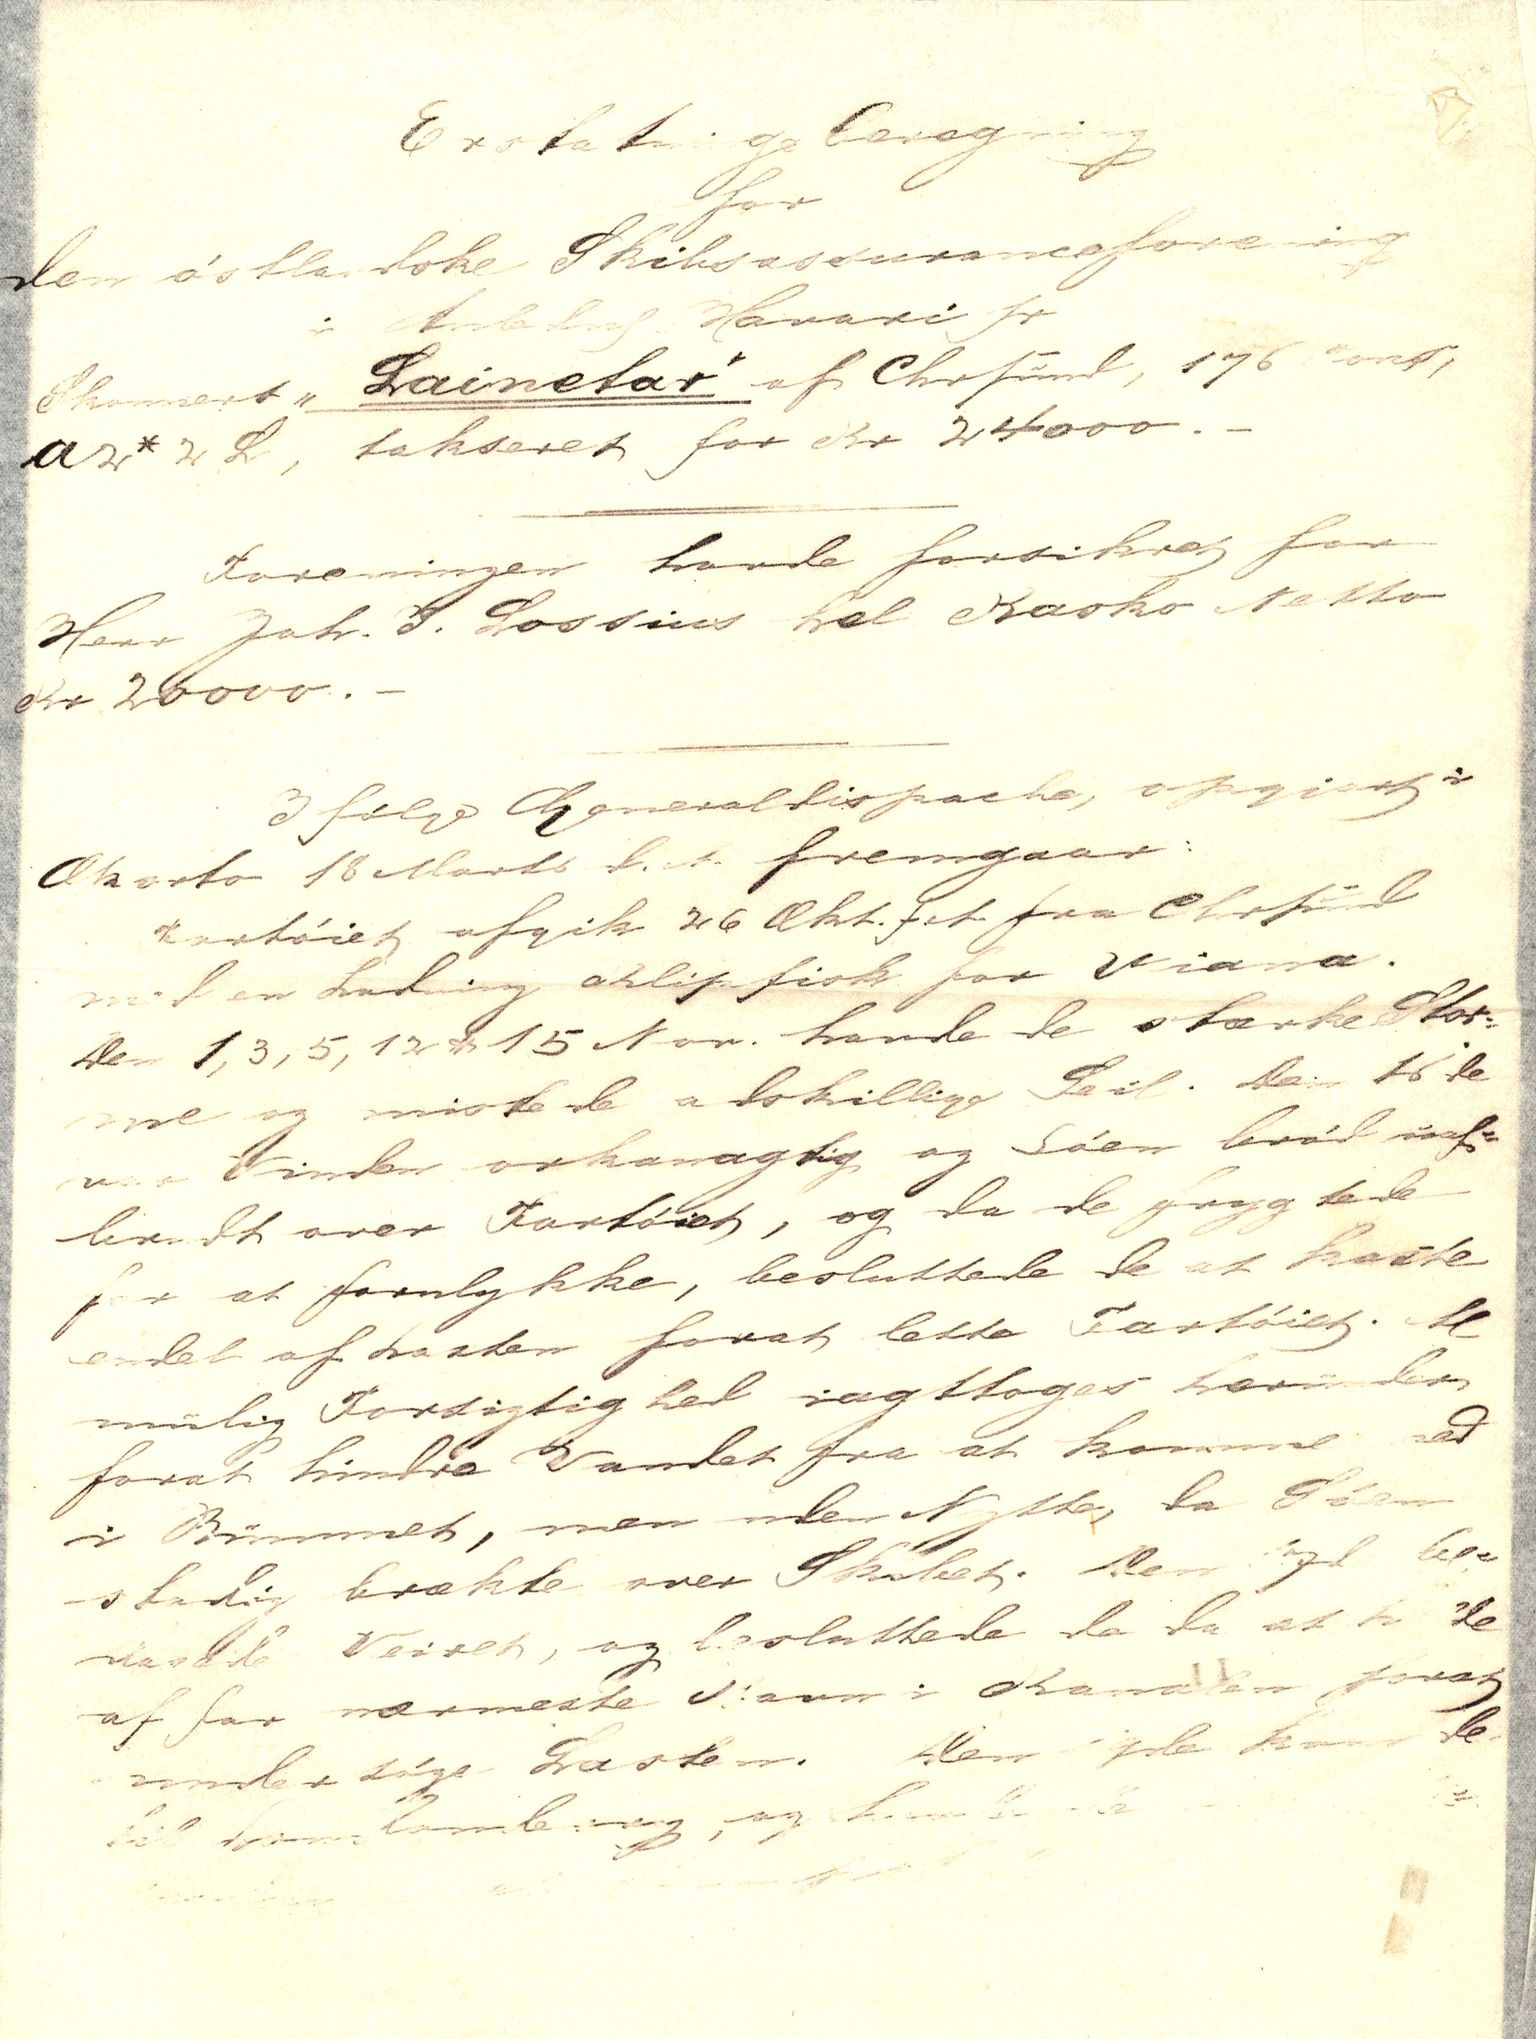 Erstatningsberegning
for
den östlandske Skibsassuranceforening
i Anledng. Havari pr
Skonnert „Lainetar" af Chrsünd, 176 Tons,
A2* 2 L, takseret for Kr 24000.-
Foreningen havde forsikret for
Herr Joh. J. Lossius hel Kasko Netto
Kr 20000.-
Ifölge Generaldispache, opgjort i
Oporto 18 Marts d. A. fremgaar:
Fartöiet afgik 26 Okt. f. A. fra Chrsünd
med en Ladning Klipfisk for Viana.
Den 1, 3, 5, 12 & 15 Nov. havde de stærke Stor=
me og mistede adskillige Seil. Den 16de
var Vinden orkanagtig og Söen bröd üaf=
brudt over Fartöiet, og da de frygtede
for at forulykke, besluttede de at kaste
endel af Lasten forat lette Fartöiet. Al
mülig Forsigtighed iagttoges heründer
forat hindre Vandet fra at komme ned
i Rümmet, men uden Nytte, da Söen
stadig brækte over Skibet. Den 17de be=
dagede Veiret, og besluttede de da at holde
af for nærmeste Havn i Kanalen forat
undersöge Lasten. Den de kom de
til , og